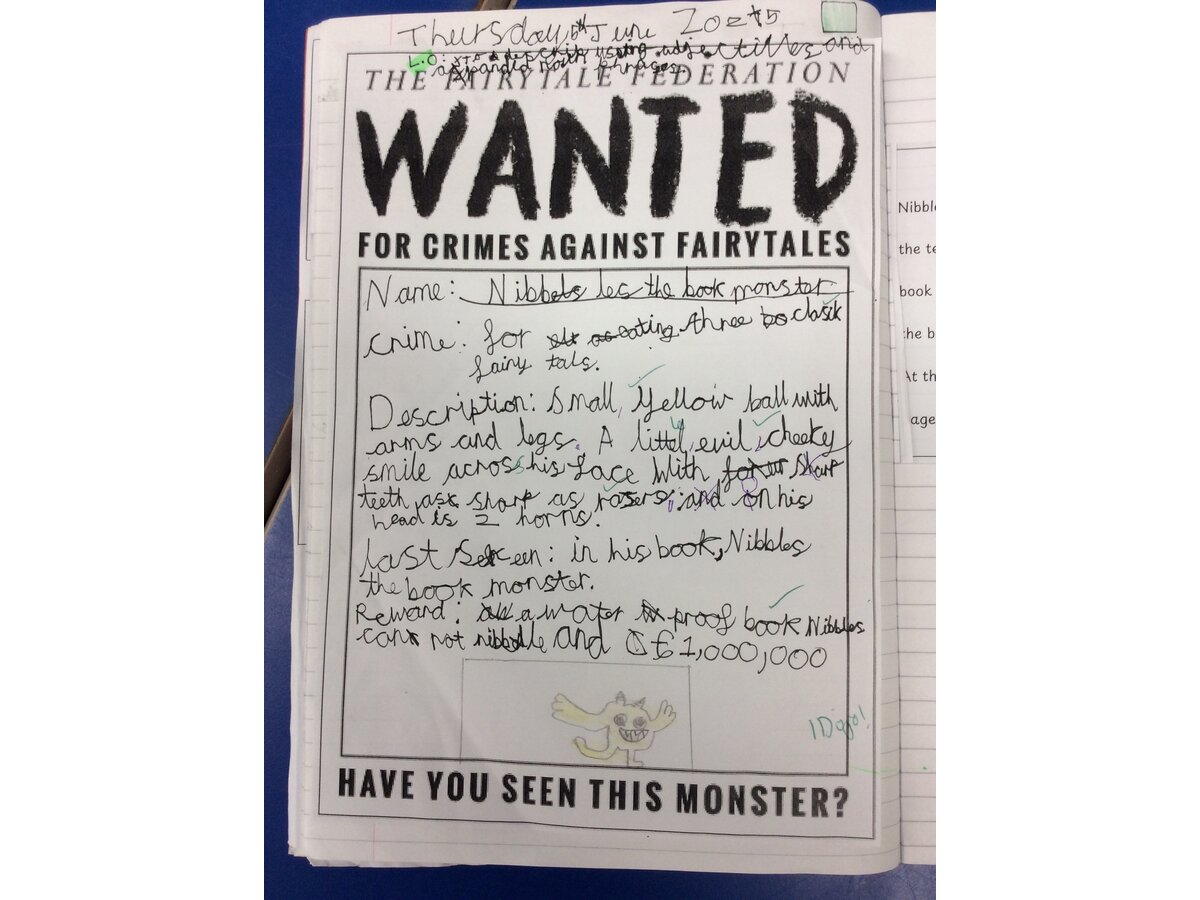 Thursday 5th June 2025
L.O: to describe using adjectives and
expanded noun phrases.
THE FAIRYTALE FEDERATION
WANTED
FOR CRIMES AGAINST FAIRYTALES
Name: Nibbels les the book monster
crime: for eating three clasik
fairy tals.
Description: Small, yellow ball with
arms and legs. A littel, evil, cheeky
smile across his face With sharp
teeth as sharp as rasers. and on his
head is 2 horns.
last Seen: in his book, Nibbles
the book monster.
Reward: a water proof book Nibbles
can not nibble and £1,000,000
1 Dojo!
HAVE YOU SEEN THIS MONSTER?
Nibble
the te
book
the b
At th
age